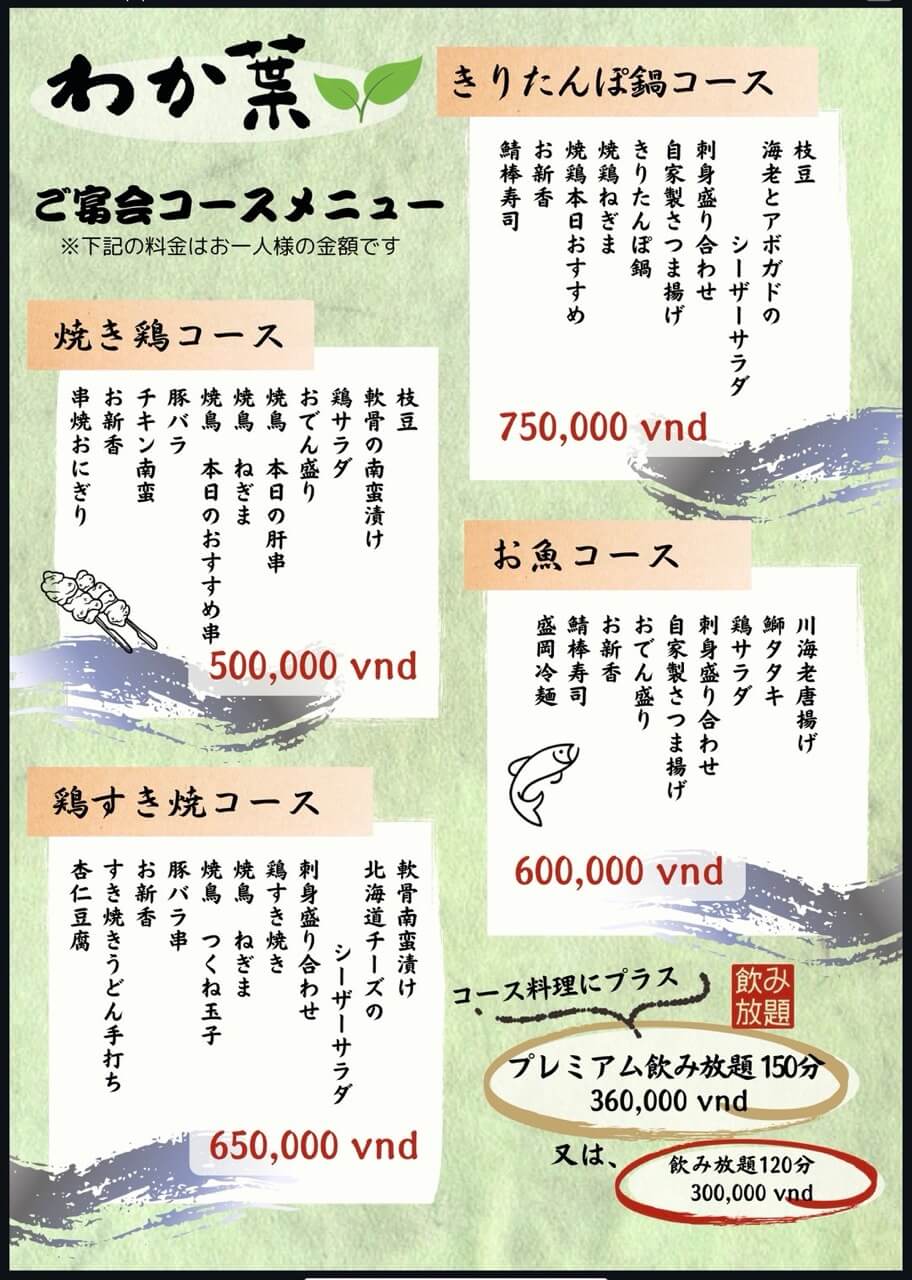 わか葉
ご宴会コースメニュー
※下記の料金はお一人様の金額です
焼き鶏コース
枝豆
軟骨の南蛮漬け
鶏サラダ
おでん盛り
焼鳥 本日の肝串
焼鳥 ねぎま
焼鳥 本日のおすすめ串
豚バラ
チキン南蛮
お新香
串焼おにぎり
500,000 vnd
鶏すき焼コース
軟骨南蛮漬け
北海道チーズの
シーザーサラダ
刺身盛り合わせ
鶏すき焼き
焼鳥 ねぎま
焼鳥 つくね玉子
豚バラ串
お新香
すき焼きうどん手打ち
杏仁豆腐
650,000 vnd
きりたんぽ鍋コース
枝豆
海老とアボガドの
シーザーサラダ
刺身盛り合わせ
自家製さつま揚げ
きりたんぽ鍋
焼鶏ねぎま
焼鶏本日おすすめ
お新香
鯖棒寿司
750,000 vnd
お魚コース
川海老唐揚げ
鰤タタキ
鶏サラダ
刺身盛り合わせ
自家製さつま揚げ
おでん盛り
お新香
鯖棒寿司
盛岡冷麺
600,000 vnd
コース料理にプラス
飲み
放題
プレミアム飲み放題150分
360,000 vnd
又は、
飲み放題120分
300,000 vnd